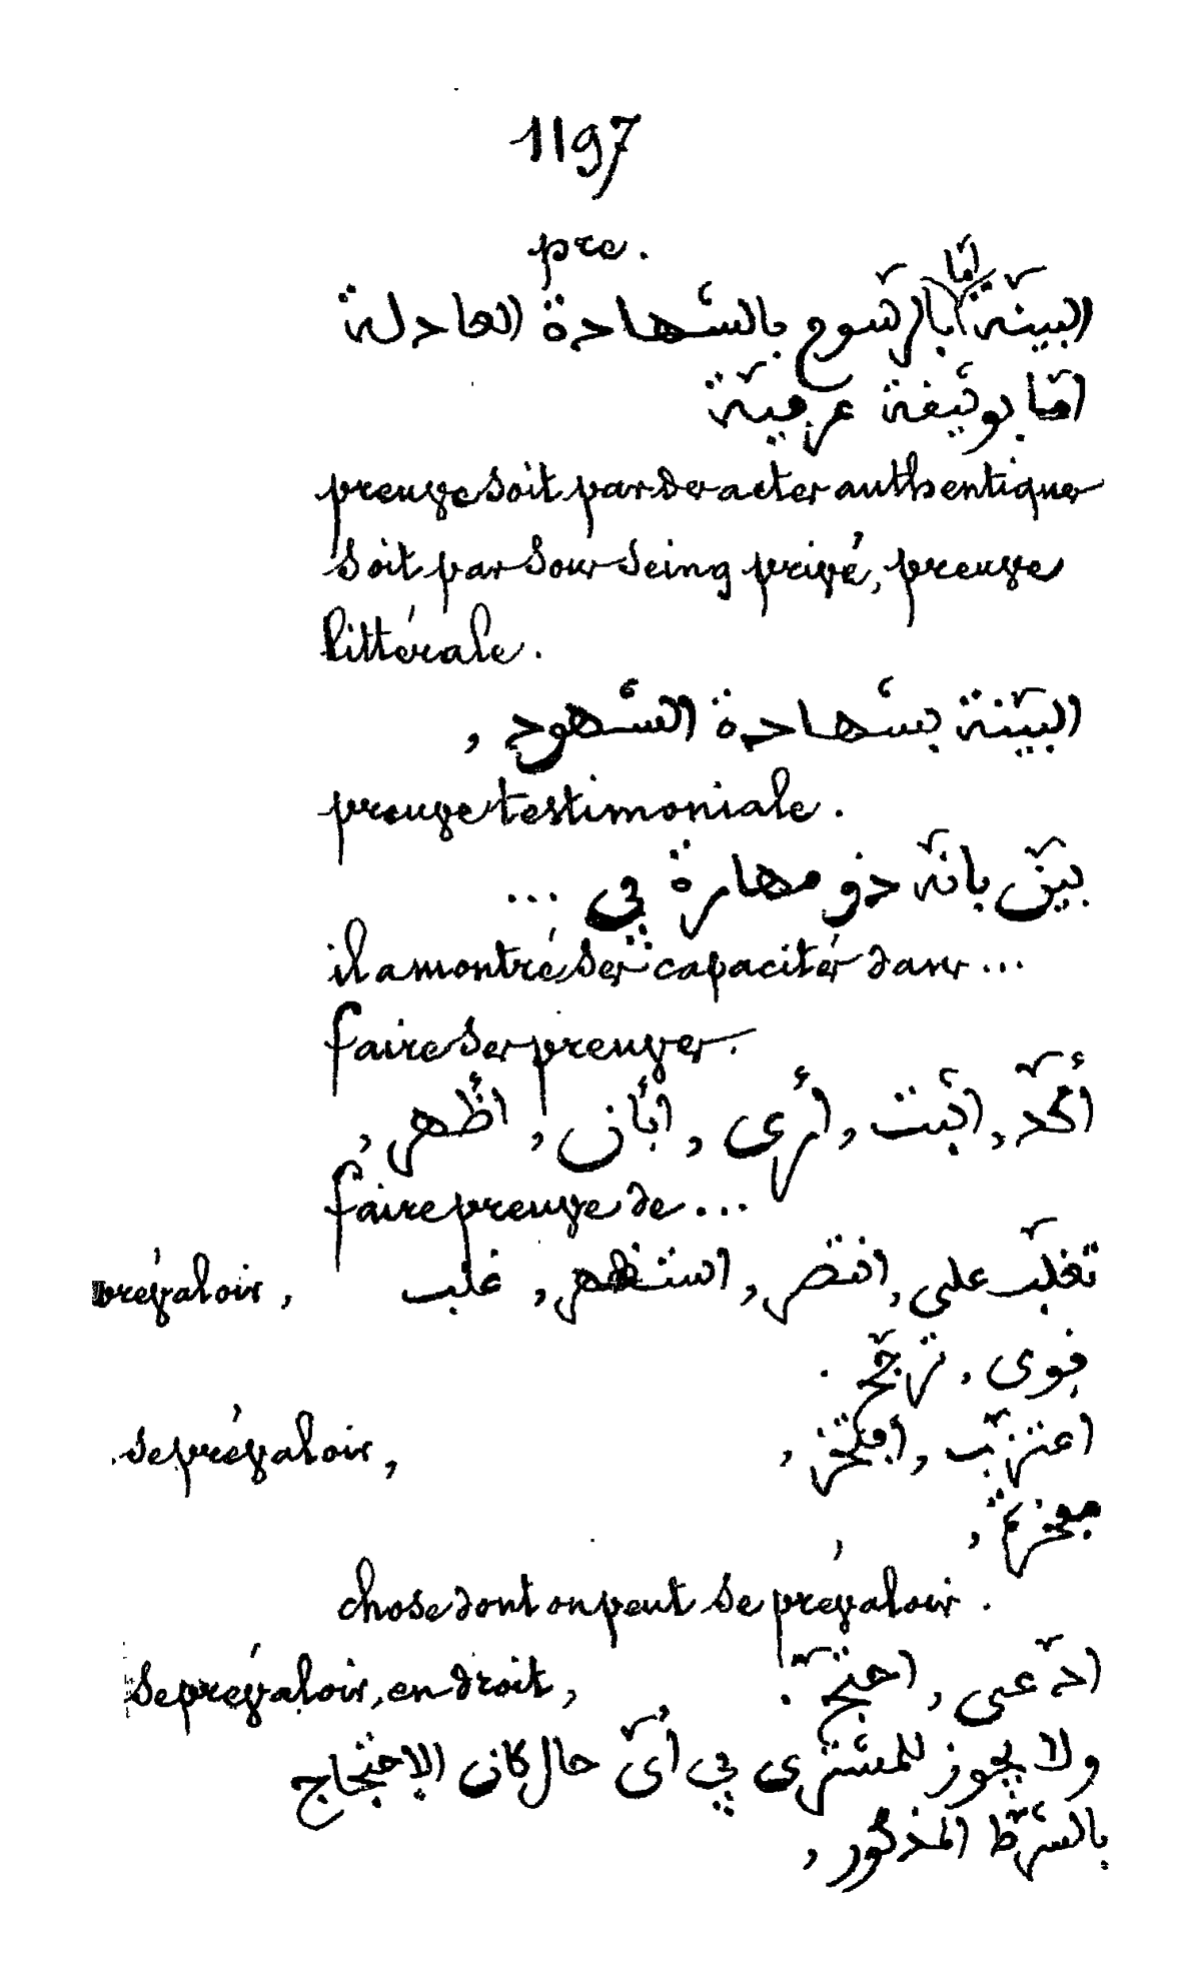 1197
pre.
البيّنة امّا بالرّسوم بالشّهادة العادلة
امّا بوثيفة عرفيّة
preuve soit par des actes authentiques
soit par sous-seing privé, preuve
littérale.
البيّنة بشهادة الشّهود ,
preuve testimoniale.
بيّن بانّه ذو مهارة في ...
il a montré ses capacités dans ...
faire ses preuves.
أكّد , اثبت , أرى , أبان , أظهر ,
faire preuve de ...
prévaloir, تغلّب على , انتصر , استظهر , غلب
فوى , ترجّح .
se prévaloir, اعتزّ ب , افتخر ,
مفخرة ,
chose dont on peut se prévaloir.
se prévaloir, en droit, ادّعى , احتجّ .
ولا يجوز للمشترى في أىّ حال كان الإحتجاج
بالشّرط المذكور ,